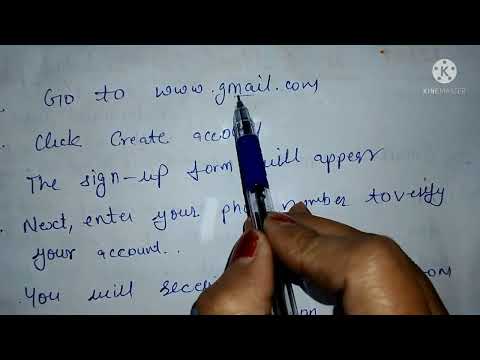 Go to www.gmail.com
Click Create
The sign-up form will appear
Next, enter your number to verify
your account..
You will
KINEMASTER